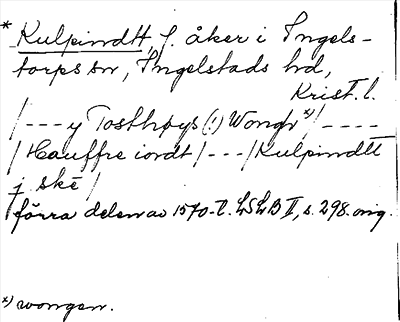 * Kulpindtt, f. åker i Ingels-
torps sn, Ingelstads hd,
Krist. l.
/--- y Tosthøys (!) Wongh x)/----
/Hauffre iordt/---/Kulpindtt
j skē/
förra delen av 1570-t. LSLB II, s. 298. orig.
x) wongen.